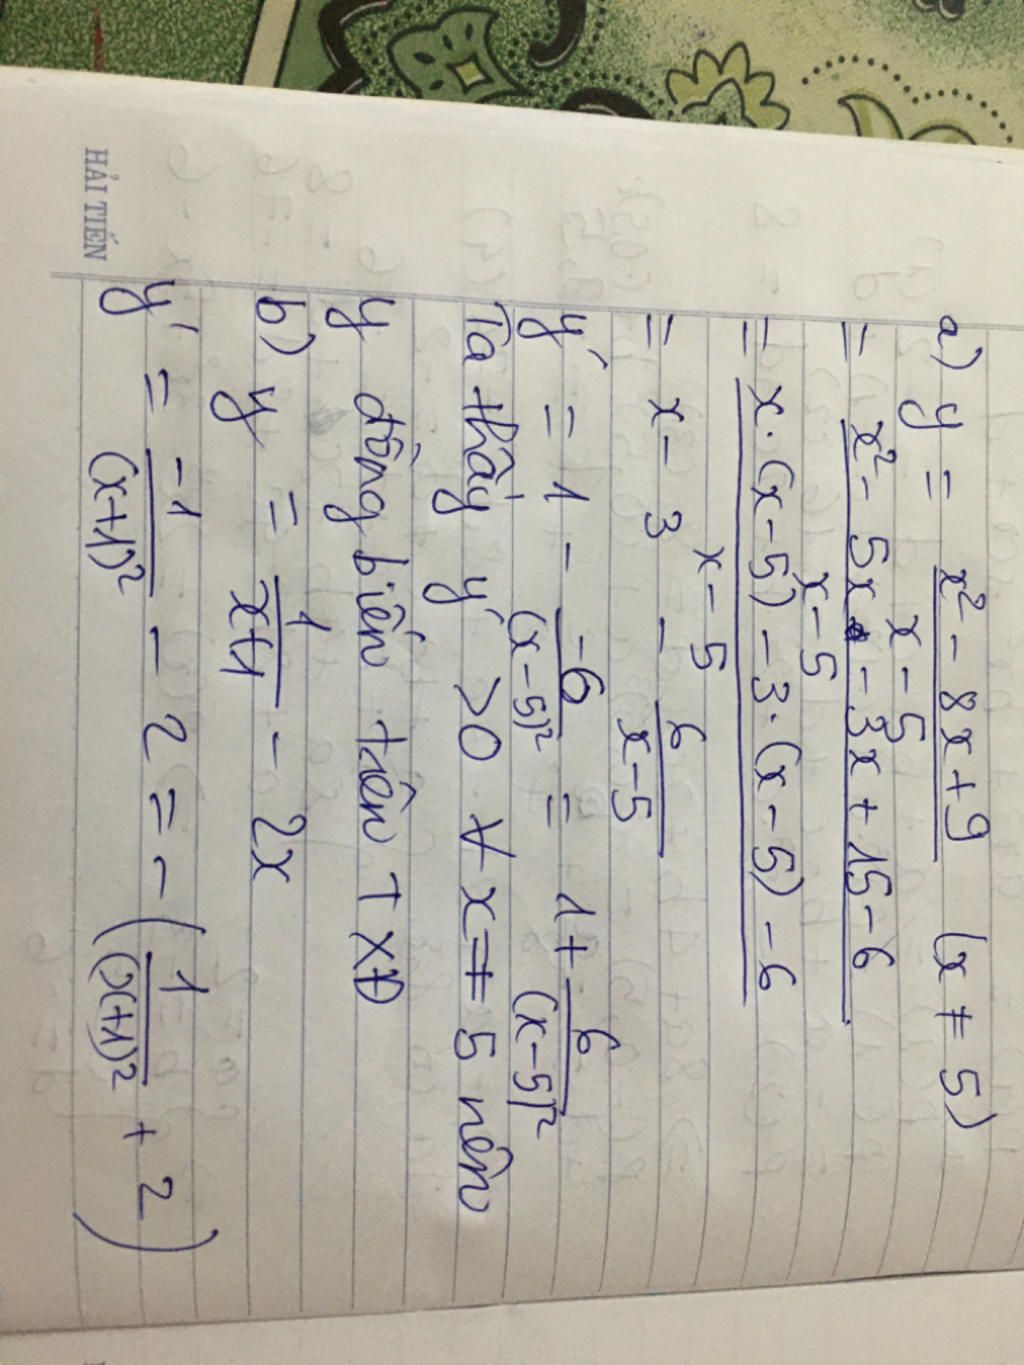 a) y = \frac{x² - 8x + 9}{x - 5} (x ≠ 5)
= \frac{x² - 5x - 3x + 15 - 6}{x - 5}
= \frac{x · (x - 5) - 3 · (x - 5) - 6}{x - 5}
= x - 3 - \frac{6}{x - 5}
y' = 1 - \frac{-6}{(x - 5)²} = 1 + \frac{6}{(x - 5)²}
Ta thấy y' > 0 ∀ x ≠ 5 nên
y đồng biến trên TXĐ
b) y = \frac{1}{x+1} - 2x
y' = \frac{-1}{(x+1)²} - 2 = - ( \frac{1}{(x+1)²} + 2 )
HẢI TIẾN